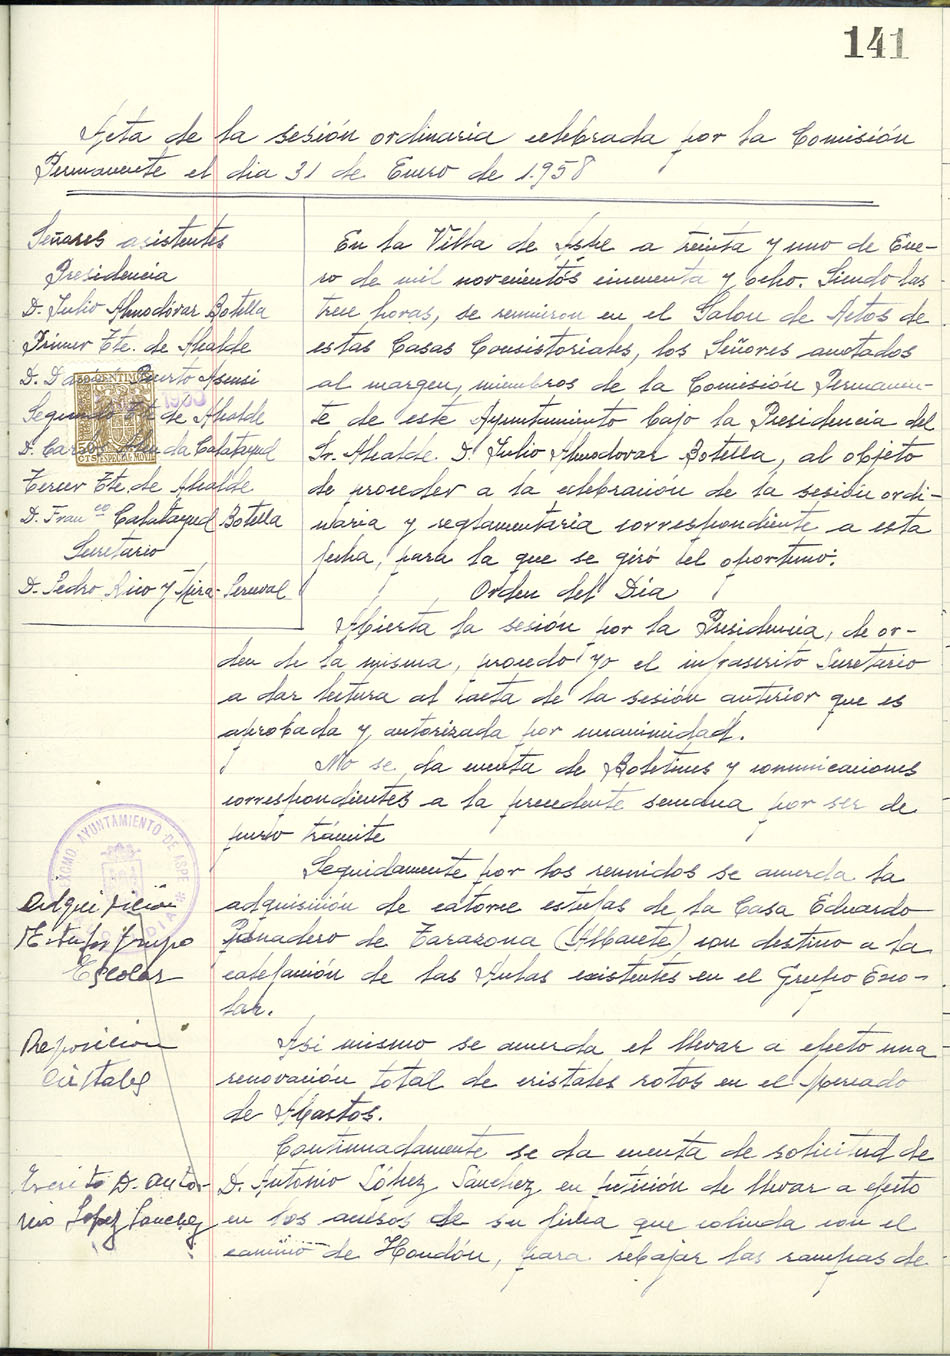 141
Acta de la sesión ordinaria celebrada por la Comisión
Permanente el dia 31 de Enero de 1.958
Señores asistentes
Presidencia
D. Julio Almodóvar Botella
Primer Tte. de Alcalde
D. Puerto Asensi
Segundo Tte. de Alcalde
D. Calatayud
Tercer Tte. de Alcalde
D. Franco Calatayud Botella
Secretario
D. Pedro Rico y Mira-Perceval
50 CENTIMOS
50
CTS ESPECIAL MOVIL
En la Villa de Aspe a treinta y uno de Ene-
ro de mil novecientos cincuenta y ocho. Siendo las
trece horas, se reunieron en el Salon de Actos de
estas Casas Consistoriales, los Señores anotados
al margen, miembros de la Comisión Permanen-
te de este Ayuntamiento bajo la Presidencia del
Sr. Alcalde. D. Julio Almodovar Botella, al objeto
de proceder a la celebración de la sesión ordi-
naria y reglamentaria correspondiente a esta
fecha, para la que se giró el oportuno:
Orden del Dia
Abierta la sesión por la Presidencia, de or-
den de la misma, procedo yo el infrascrito Secretario
a dar lectura al acta de la sesión anterior que es
aprobada y autorizada por unanimidad.
No se da cuenta de Boletines y comunicaciones
correspondientes a la precedente semana por ser de
puro trámite
Seguidamente por los reunidos se acuerda la
adquisición de catorce estufas de la Casa Eduardo
Panadero de Tarazona (Albacete) con destino a la
calefacción de las Aulas existentes en el Grupo Esco-
lar.
Asi mismo se acuerda el llevar a efecto una
renovación total de cristales rotos en el Mercado
de Abastos.
Continuadamente se da cuenta de solicitud de
D. Antonio López Sánchez en petición de llevar a efecto
en los accesos de su finca que colinda con el
camino de Hondón, para rebajar las rampas de
EXCMO. AYUNTAMIENTO DE ASPE
Adquisición
Estufas Grupo
Escolar
Reposicion
Cristales
Escrito D. Anto-
nio Lopez Sanchez